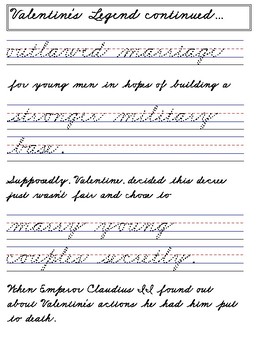 Valentine's Legend continued...
outlawed marriage
for young men in hopes of building a
stronger military
base.
Supposadly, Valentine, decided this decree
just wasn't fair and chose to
marry young
couples secretly.
When Emperor Claudius II found out
about Valentine's actions he had him put
to death.